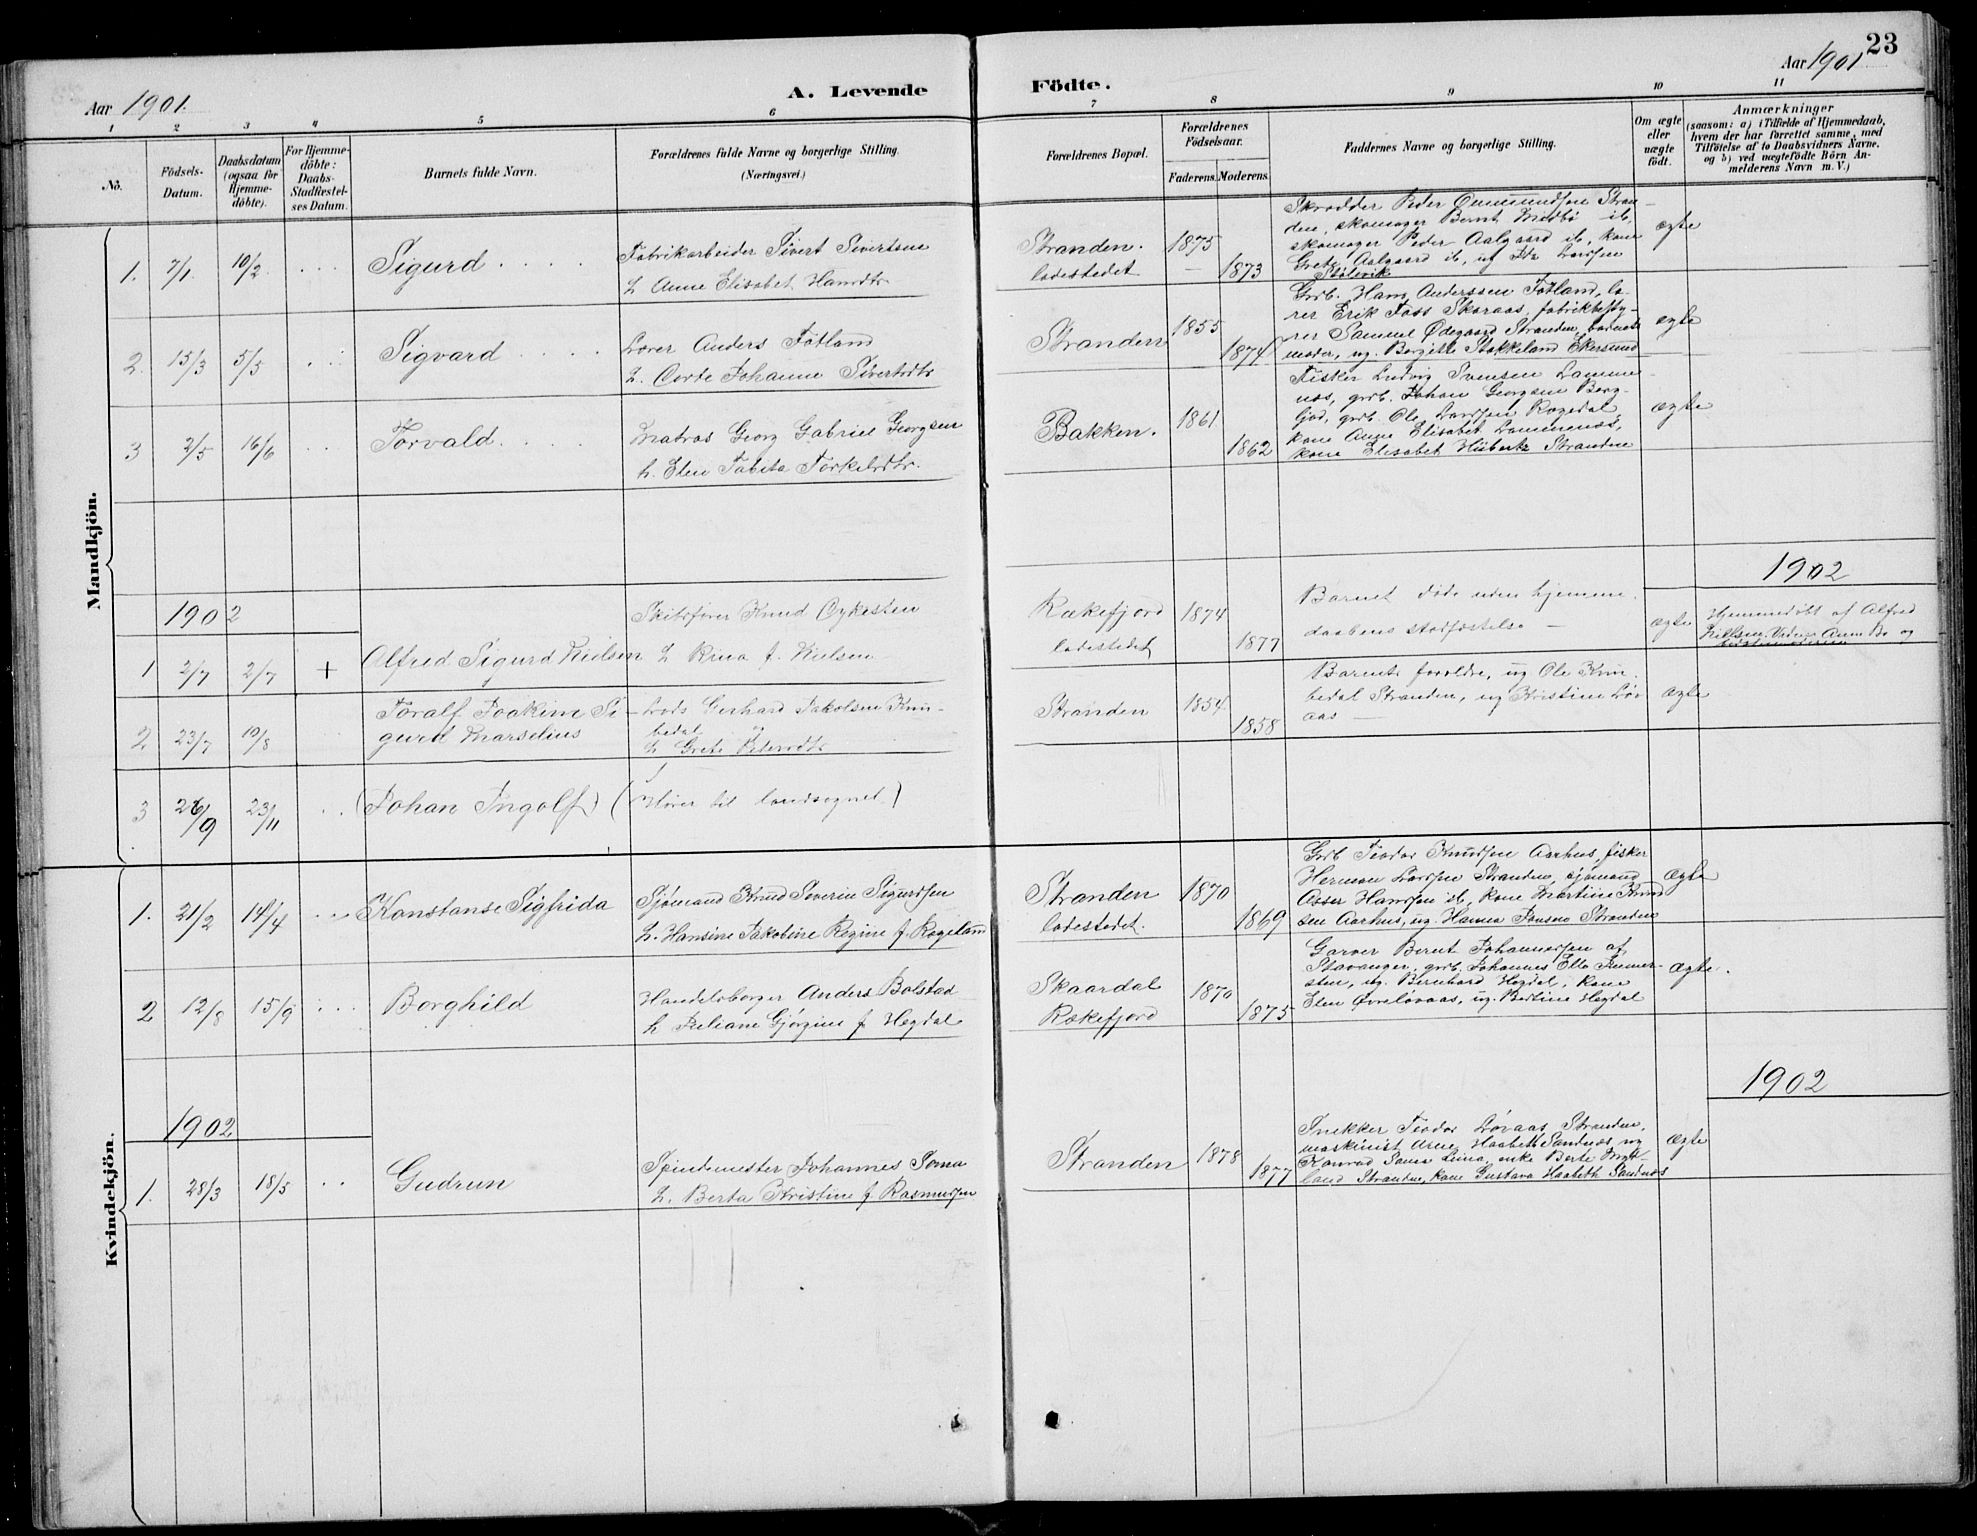 23
Aar 1901.
A. Levende
Födte.
Aar 1901
1 2 3 4 5 6 7 8 9 10 11
No.
Födsels-
Datum.
Daabsdatum
(ogsaa for
Hjemme-
döbte).
For Hjemme-
döbte:
Daabs-
Stadfæstel-
ses Datum.
Barnets fulde Navn.
Forældrenes fulde Navne og borgerlige Stilling.
(Næringsvei.)
Forældrenes Bopæl.
Forældrenes
Födselsaar.
Faderens. Moderens.
Faddernes Navne og borgerlige Stilling.
Om ægte
eller
uægte
født.
Anmærkninger
(saasom: a) i Tilfælde af Hjemmedaab,
hvem der har forrettet samme, med
Tilföielse af to Daabsvidners Navne,
og b) ved uægtefödte Börn An-
melderens Navn m. V.)
Mandkjön.
1. 7/1 10/2 Sigurd
Fabrikarbeider Sivert Sivertsen
h. Anne Elisabet Hansdtr.
Stranden.
ladestedet
1875
1873
Skrædder Peder Ommundsen Stran-
den, skomager Bernt Medbø ib,
skomager Peder Aalgaard ib, kone
Grete Aalgaard ib, ug
Stølevik
ægte
2. 15/3 5/5 Sigvard
Lærer Anders Fotland
h. Corde Johanne Sivertsdtr
Stranden
1855
1874
Grb. Hans Anderssen Fotland, læ-
rer Erik Foss Skaraas, fabrikbesty-
rer Samuel Ødegaard Stranden, barnets
moder, ug. Borgitte Stokkeland Ekersund
ægte
3 2/5 16/6 Torvald
Matros Georg Gabriel Georgsen
h. Elen Tabita Torkelsdtr.
Bakken.
1861
1862
Fisker Ludvig Svensen Lamme-
næs, grb. Johan Georgsen Berg-
ljod, grb. Ole Larssen Rægedal,
kone Anne Elisabet Lammenæs,
kone Elisabet Hübertz Stranden
ægte
1902
1902
1 2/7 2/7 + Alfred Sigurd Nielsen
Skibsfører Knud
h. Rina f. Nielsen
Rækefjord
ladestedet
1874
1877
Barnet døde uden hjemme-
daabens stadfæstelse —
ægte
Hjemmedøbt af Alfred
Nielsen. Vidner Anne Bø og
2 23/7 10/8 Toralf Joakim Si-
gurd Marselius
Lods Gerhard Jakobsen Knu-
bedal
h Grete Petersdtr
Stranden
1854
1858
Barnets forældre, ug Ole Knu-
bedal Stranden, ug Kristine Løv-
aas —
ægte
3 26/9 23/11 (Johan Ingolf) (Hører til landsognet)
Kvindekjön.
1. 21/2 14/4 Konstanse Sigfrida
Sjømand Knud Severin Sigurdsen
h. Hansine Jakobine Regine f. Rægeland
Stranden
ladestedet.
1870
1869
Grb Teodor Knudsen Aarhus, fisker
Herman Larssen Stranden, sjømand
Osser Hanssen ib, kone Martine Knud
sen Aarhus, ug. Hanna Jonsen Stranden
ægte
2 12/8 15/9 Borghild
Handelsborger Anders Bolstad
h. Juliane Gjørgine f Hegdal
Skaardal
Rækefjord
1870
1875
Garver Bernt Johannessen af
Stavanger, grb. Johannes Ello
sten, ug. Bernhard Hegdal, kone
Elen Øvreløvaas, ug. Bertine Hegdal
ægte.
1902
1902
1. 28/3 18/5 Gudrun
Spindemester Johannes Soma
h. Berta Kristine f Rasmussen
Stranden
1878
1877
Snekker Teodor Løvaas Stranden,
maskinist Arne Haabeth Sandnes, ug
Konrad Soma Lima, enke Berte
land Stranden, kone Gustava Haabeth Sandnes
ægte